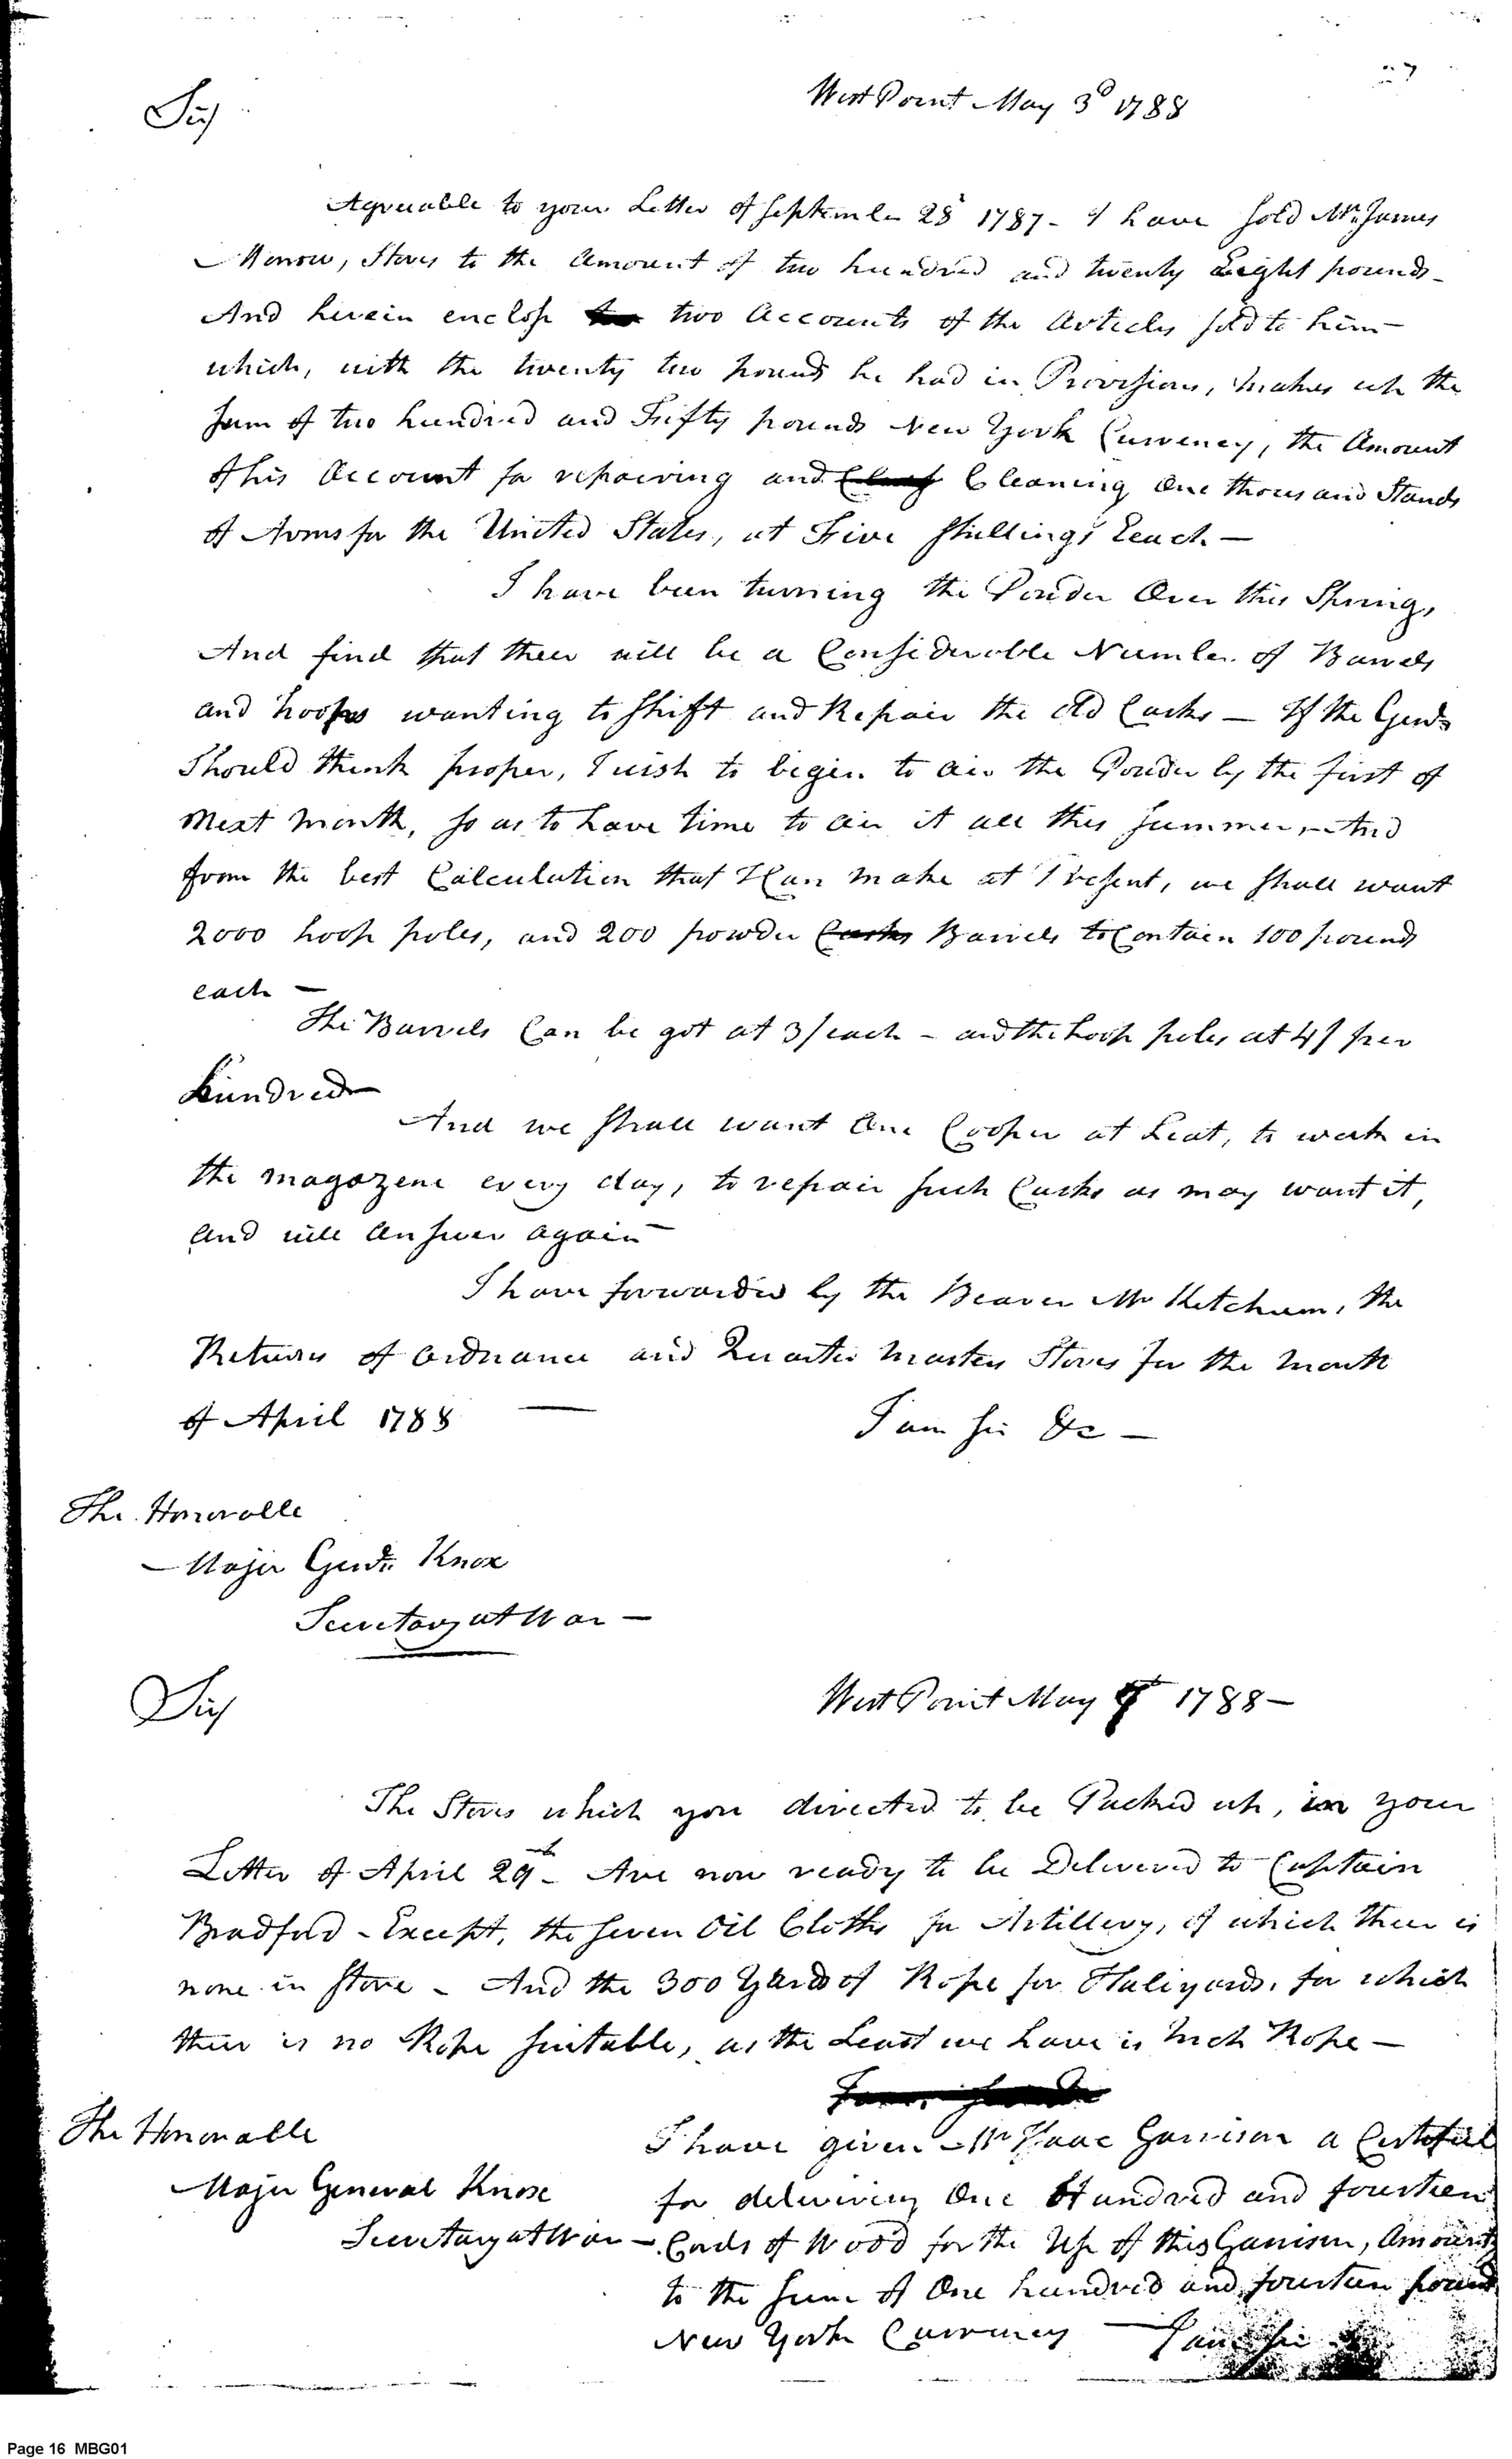 West Point May 3d 1788
Sir
Agreeable to your Letter of September 28 1787 - I have sold Mr. James
Morrow, Stores to the Amount of two hundred and twenty Eight pounds -
And herein enclose two Accounts of the Articles sold to him -
which, with the twenty two pounds he had in Provisions, makes up the
Sum of two hundred and Fifty pounds New York Currency, the Amount
of his Account for repairing and Cleaning One thousand Stands
of Arms for the United States, at Five Shillings Each -
I have been turning the Powder Over this Spring,
And find that there will be a Considerable Number of Barrels
and hoops wanting to Shift and Repair the old Casks - If the Genl.
Should think proper, I wish to begin to air the Powder by the first of
Next Month, so as to have time to air it all this summer, - And
from the best Calculation that I Can make at Present, we shall want
2000 hoop poles, and 200 powder Casks Barrels to Contain 100 pounds
each -
The Barrels Can be got at 3/ each - and the hoop poles at 4/ per
hundred -
And we shall want One Cooper at Least, to work in
the magazene every day, to repair such Casks as may want it,
and will Answer again -
I have forwarded by the Bearer Mr Ketchum, the
Returns of Ordnance and Quarter Masters Stores for the Month
of April 1788 —
I am Sir &c -
The Honorable
Major Genl. Knox
Secretary at War -
West Point May 1788 -
Sir
The Stores which you directed to be Packed up, in your
Letter of April 29th - Are now ready to be Delivered to Captain
Bradford - Except, the seven Oil Cloths for Artillery, of which there is
none in Store - And the 300 Yards of Rope for Haliyards, for which
there is no Rope suitable, as the Least we have is Inch Rope -
I have given Mr Isaac Garrison a
for delivering One Hundred and fourteen
Cords of Wood for the Use of this Garrison, Amount
to the Sum of One hundred and fourteen pound
New York Currency — I am Sir
The Honorable
Major General Knox
Secretary at War -
Page 16 MBG01